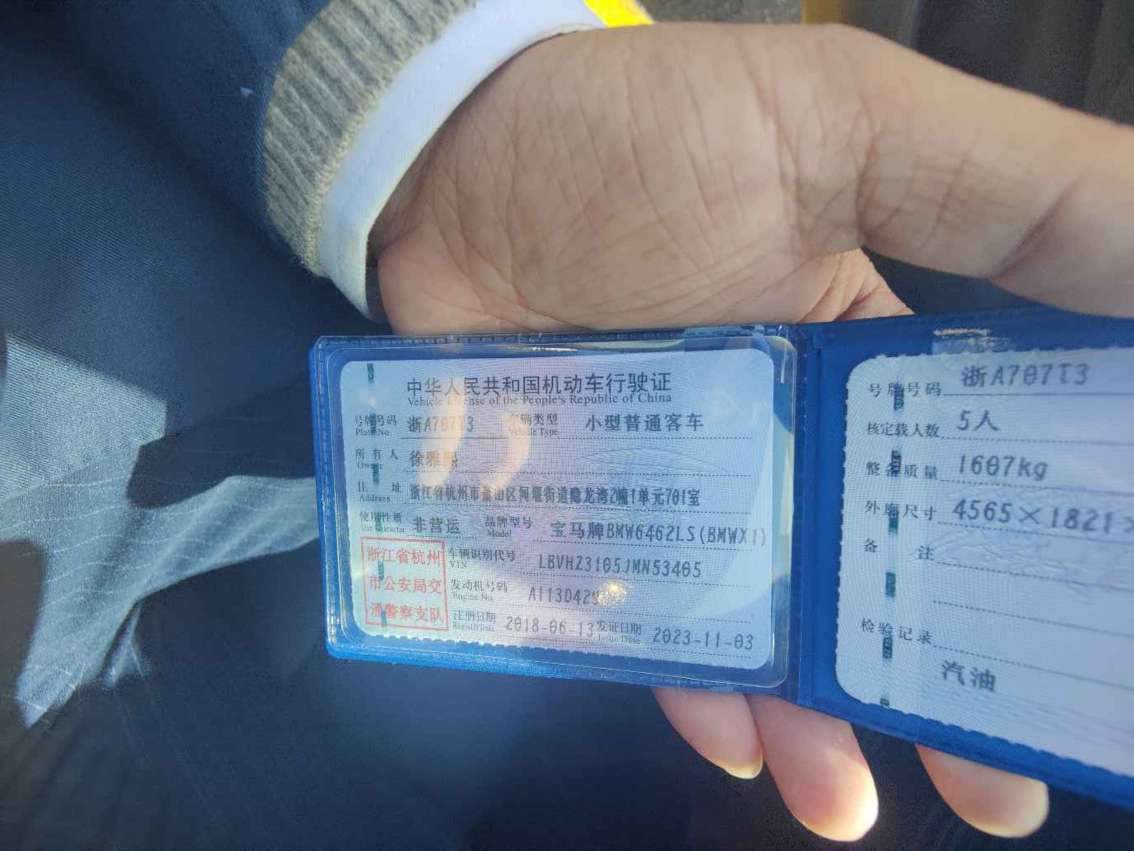 中华人民共和国机动车行驶证
Vehicle License of the People's Republic of China
号牌号码 浙A707T3 车辆类型 小型普通客车
Plate No. Vehicle Type
所有人 徐雅
Owner
住址 浙江省杭州市萧山区闻堰街道隐龙湾2幢1单元701室
Address
使用性质 非营运 品牌型号 宝马牌BMW6462LS(BMWX1)
Use Character Model
浙江省杭州
市公安局交
通警察支队
车辆识别代号 LBVHZ3105JMN53405
VIN
发动机号码 A113D429
Engine No.
注册日期 2018-06-13 发证日期 2023-11-03
Register Date Issue Date
号牌号码 浙A707T3
核定载人数 5人
整备质量 1607kg
外廓尺寸 4565×1821×
备注
检验记录
汽油